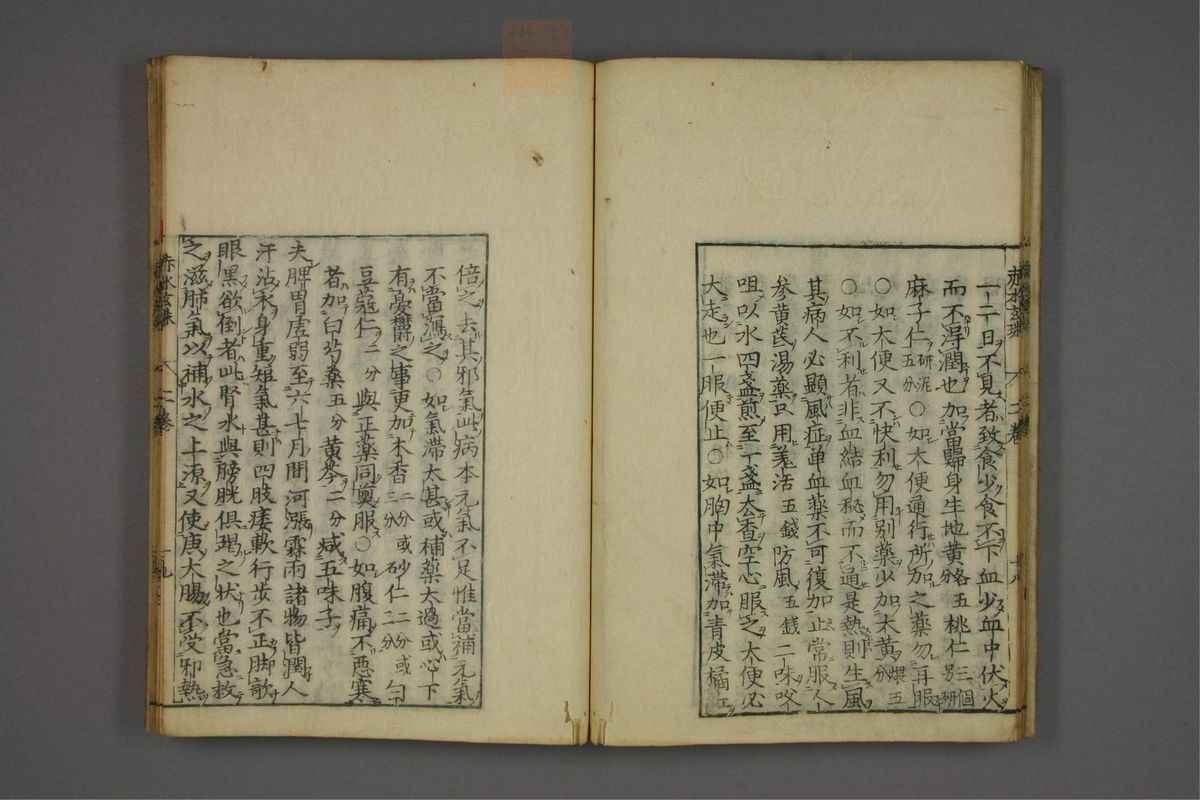 一二日不見者致食少食不下血少血中伏火
而不得潤也加當歸身生地黄各五分桃仁三個別研
麻子仁五分研泥○如大便通行所加之藥勿再服
○如大便又不快利勿用别藥少加大黄煨五分
○如不利者非血結血秘而不通是熱則生風
其病人必顯風症單血藥不可復加止常服人
參黄芪湯藥只用羗活五錢防風五錢二味㕮
咀以水四盞煎至一盞去査空心服之大便必
大走也一服便止○如胸中氣滯加青皮橘
倍之去其邪氣此病本元氣不足惟當補元氣
不當瀉之○如氣滯太甚或補藥太過或心下
有憂欝之事更加木香二分三分或砂仁二分三分或白
荳蔲仁二分與正藥同煎服○如腹痛不惡寒
者加白芍藥五分黄芩二分咸五味子
夫脾胃虚弱至六七月間河漲霖雨諸物皆潤人
汗沾衣身重短氣甚則四肢痿軟行步不正脚欹
眼黑欲倒者此腎水與膀胱俱竭之状也當急救
之滋肺氣以補水之上源又使庚大腸不受邪熱
赤水玄珠 二卷 十九